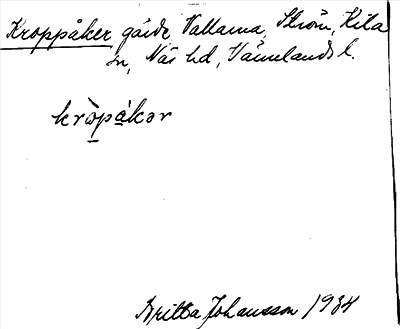 Kroppåker gärde Vallarna, Ström, Kila
sn, Näs hd, Värmlands l.
kròpåkər
Britta Johansson 1934